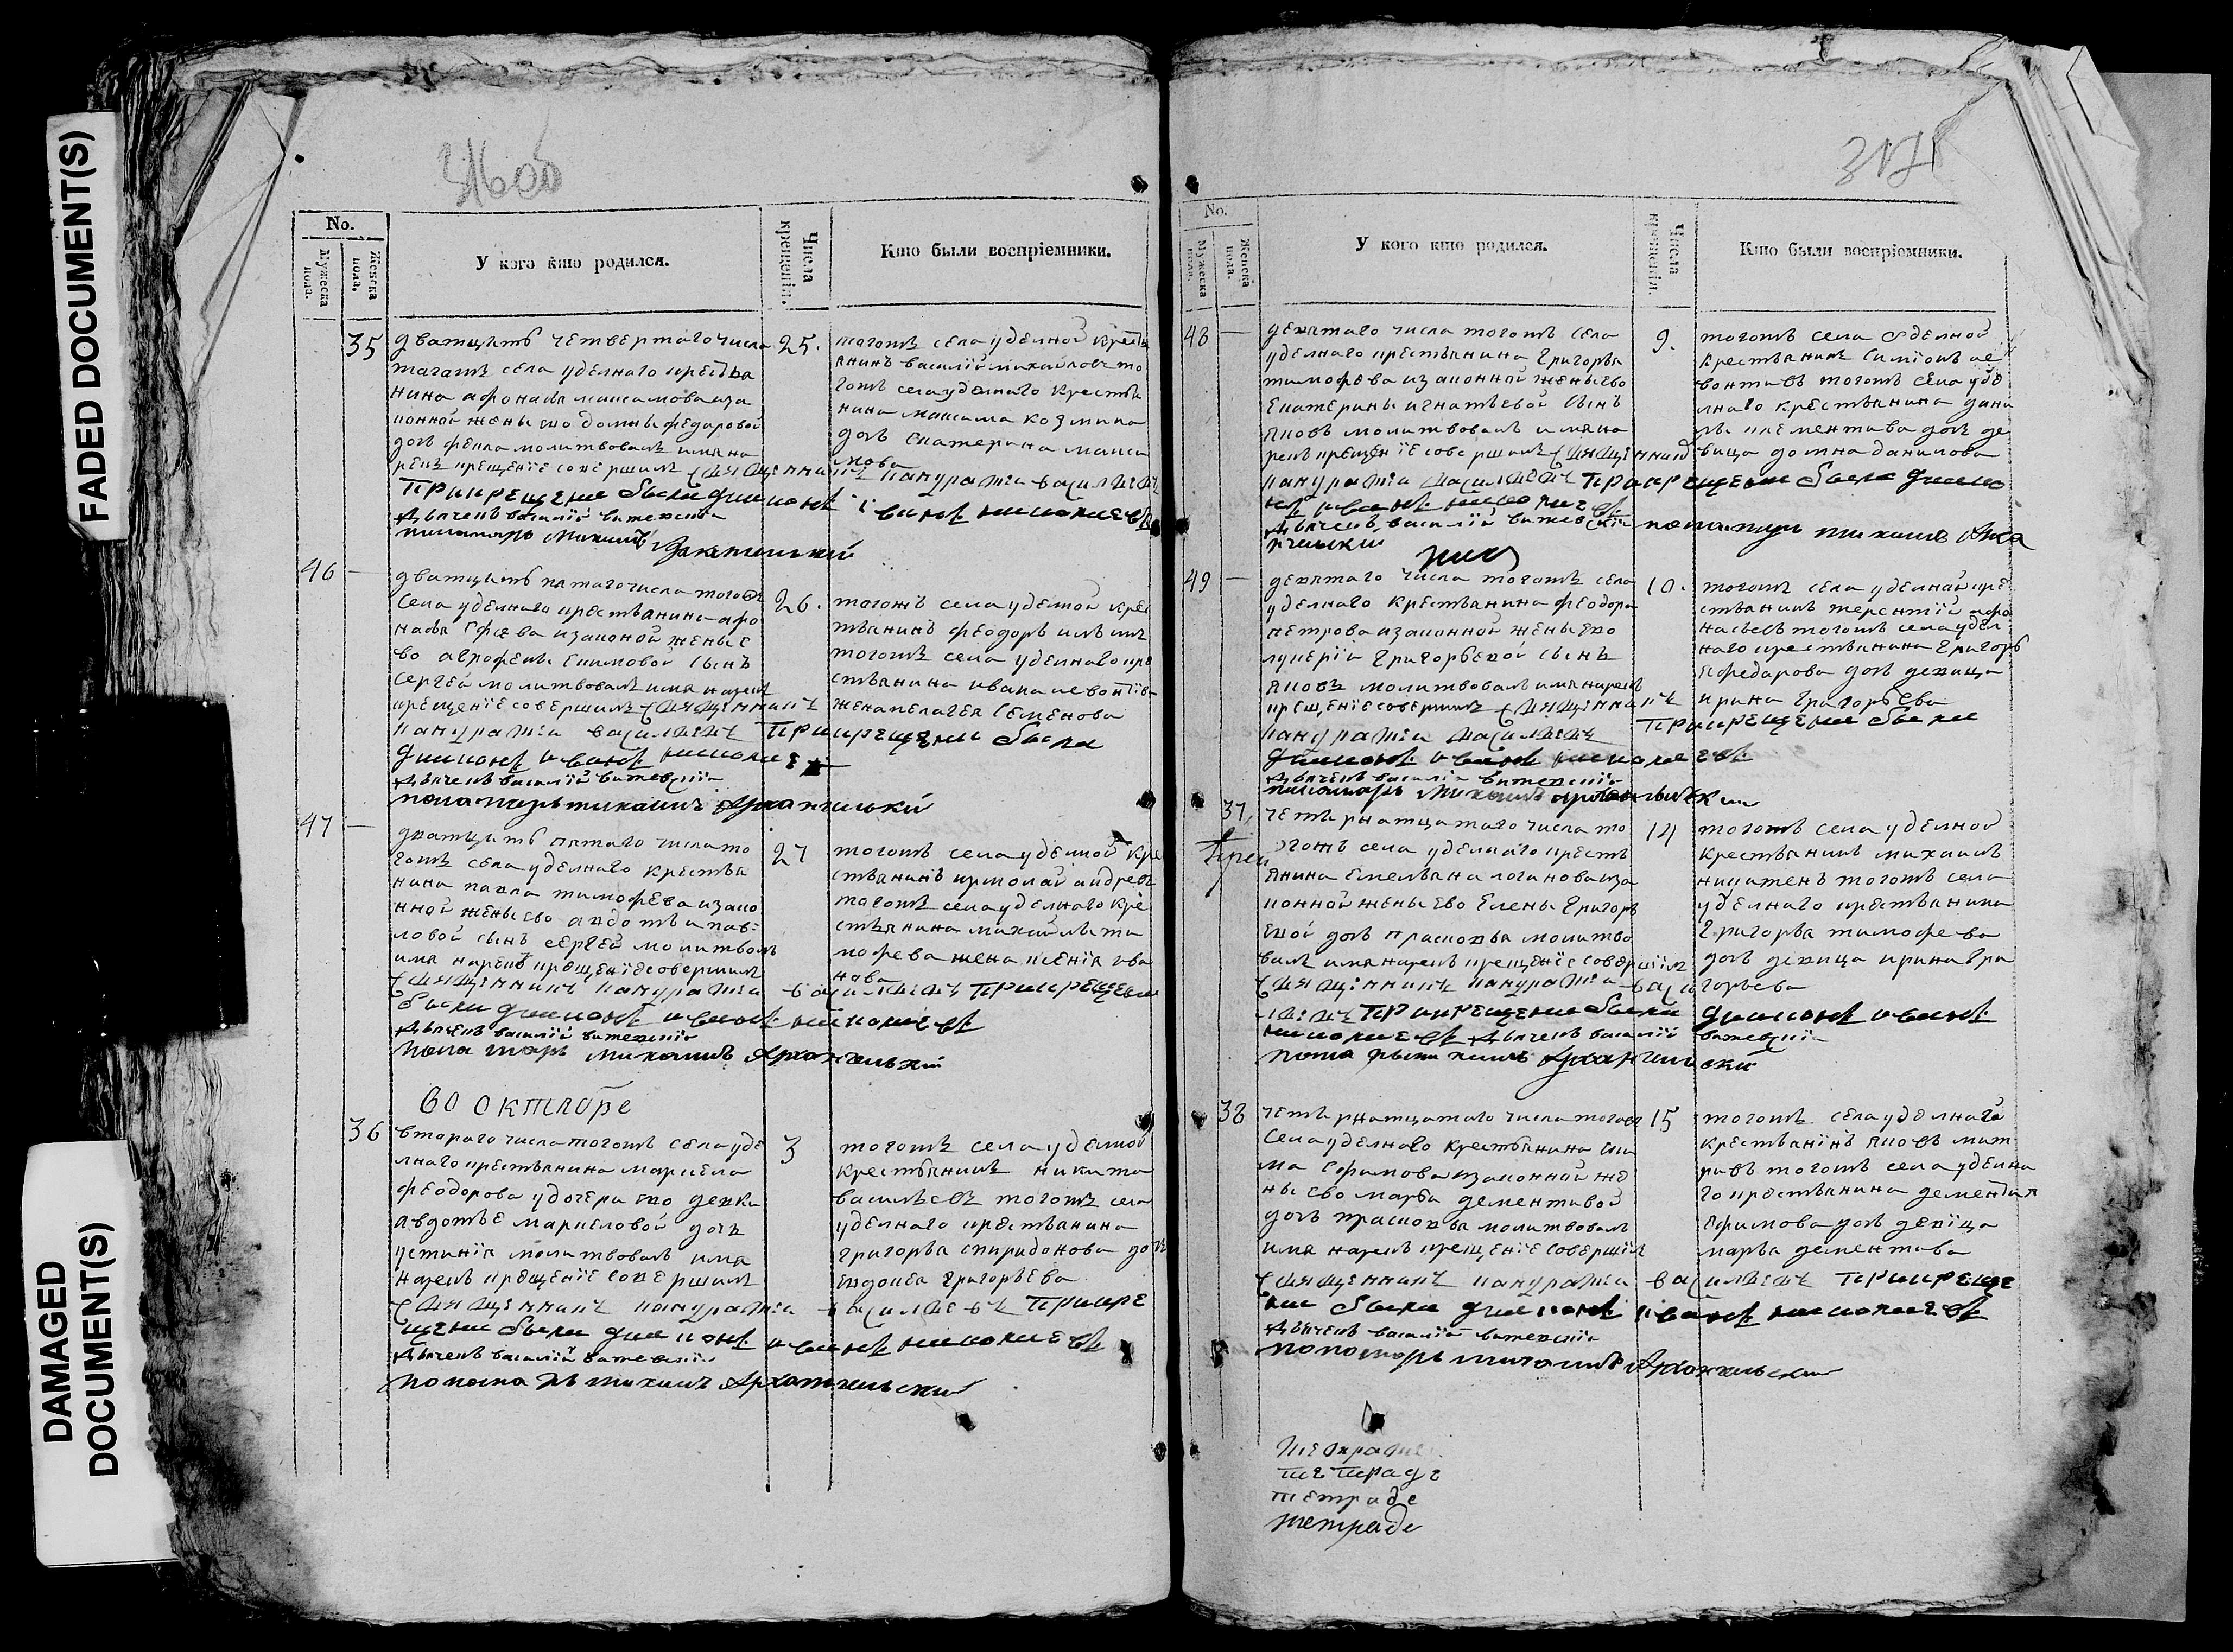 FADED DOCUMENT(S)
DAMAGED
DOCUMENT(S)
No.
Мужеска пола.
Женска пола.
У кого кто родился.
Числа крещенія.
Кто были воспріемники.
35
дватцать четвертаго числа
тагожъ села уделнаго крестья
нина афонасья максимова иза
конной жены ево домны федаровой
дочь фекла молитвовалъ имя на
рекъ крещенїе совершилъ священникъ панкратiй василиевъ
При крещенїи были диаконъ iванъ николаевъ
Дьячекъ василïй витевскïй
пономарь Михаилъ
25.
тагожъ села уделной кресть
янинъ василïй михайловъ то
гожъ села уделнаго крестья
нина максима козмина
дочь екатерина макси
мова
46
дватцать пятаго числа тогожъ
села уделнаго крестьянина афо
насья ефрева изаконой жены е
во агрофены екимовой сынъ
сергей молитвовалъ имя нарекъ
крещенїе совершилъ священникъ
панкратiй василиевъ При крещенїи были
диаконъ iванъ николаевъ
Дьячекъ василïй витевскïй
пономарь михаилъ Архангильскïй
26.
тогожъ села уделной крес
тьянинъ феодоръ
тогожъ села уделнаго кре
стьянина ивана левонтïева
жена пелагея семенова
47
дватцать пятаго числа то
гожъ села уделнаго крестья
нина павла тимофева изако
нной жены ево авдотьи пав-
ловой сынъ сергей молитвовалъ
имя нарекъ крещенїе совершилъ
священникъ панкратiй василиевъ При крещенїи
были диаконъ iванъ николаевъ
Дьячекъ василïй витевскïй
пономарь Михаилъ Архангельскïй
27
тогожъ села уделной кре
стьянинъ ирмолай андревъ
тагожъ села уделнаго кре
стьянина михайлы ти
мофева жена ксенïя ива
нова
во октябре
36
втораго числа тогожъ села уде
лнаго крестьянина маркела
феодорова у дочери ево девки
авдотье маркеловой дочь
устинïя молитвовалъ имя
нарекъ крещенїе совершилъ
священникъ панкратiй василиевъ При кре
щенїи были диаконъ iванъ николаевъ
Дьячекъ василïй витевскïй
пономарь михаилъ Архангельскïй
3
тогожъ села уделной
крестьянинъ никита
васильевъ тогожъ села
уделнаго крестьянина
григорья спиридонова дочь
евдокея григорьева
No.
Мужеска пола.
Женска пола.
У кого кто родился.
Числа крещенія.
Кто были воспріемники.
48
девятаго числа тогожъ села
уделнаго крестьянина григорья
тимофева изаконной жены ево
екатерины игнатьевой сынъ
яковъ молитвовалъ имя на
рекъ крещенїе совершилъ священникъ
панкратiй василиевъ При крещенїи были диако
нъ iванъ николаевъ
Дьячекъ василïй витевскïй пономарь михаилъ Арха
нгилскïй
9.
тогожъ села уделной
крестьянинъ симïонъ ле
вонтивъ тогожъ села уде
лнаго крестьянина дани
лы клементива дочь де
вица домна данилова
49
девятаго числа тогожъ села
уделнаго крестьянина феодора
петрова изаконной жены ево
лукерïи григорьевой сынъ
яковъ молитвовалъ имя нарекъ
крещенїе совершилъ священникъ
панкратiй василиевъ При крещенїи были
диаконъ iванъ николаевъ
Дьячекъ василïй витевскïй
пономарь Михаилъ Архангильскïй
10.
тогожъ села уделной кре
стьянинъ терентïй афо
насьевъ тогожъ села удел
наго крестьянина григорь
я федарова дочь девица
ирина григорьева
37,
четырнатцатаго числа то
гожъ села уделнаго кресть
янина емельяна логинова иза
конной жены ево елены григорь
евой дочь прасковья молитво
валъ имя нарекъ крещенїе совершïлъ
священникъ панкратiй васи
лиевъ При крещенїи были диаконъ iванъ
николаевъ Дьячекъ василïй витевскïй
пономарь михаилъ Архангильскïй
14
тогожъ села уделной
крестьянинъ михаилъ
никитенъ тогожъ села
уделнаго крестьянина
григорья тимофева
дочь девица ирина гри
горьева
38
четырнатцатаго числа тогожъ
села уделнаго крестьянина
ефимова изаконной же
ны ево марьи дементивой
дочь прасковья молитвовалъ
имя нарекъ крещенїе совершïлъ
священникъ панкратiй василиевъ При креще
нїи были диаконъ iванъ николаевъ
Дьячекъ василïй витевскïй
пономарь михаилъ Архангельскïй
15
тогожъ села уделнаго
крестьянïнъ яковъ мит
ривъ тогожъ села уделна
го крестьянина дементия
ефимова дочь девïца
марья дементива
тетраде
тетраде
тетраде